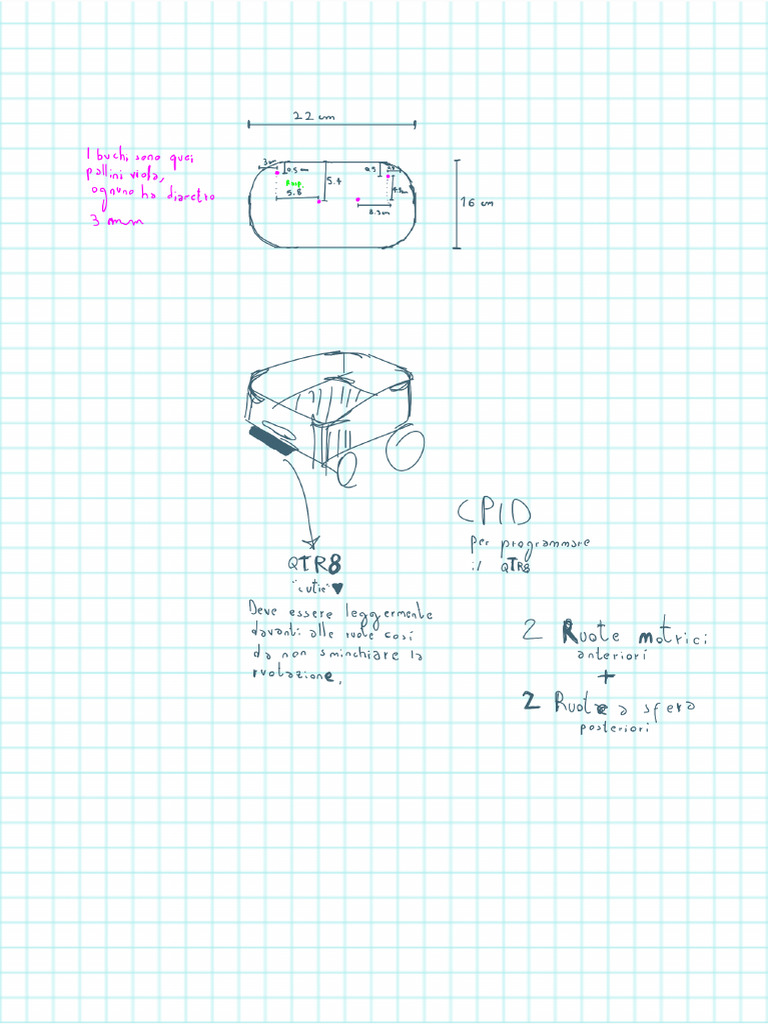 22 cm
I buchi sono quei
pallini viola,
ognuno ha diametro
3 mm
3
0.5 cm
5.4
0.5
5.8
8.3cm
16 cm
QTR8
"cutie" ♥
Deve essere leggermente
davanti alle ruote così
da non sminchiare la
ruotazione,
CPID
per programmare
il QTR8
2 Ruote Motrici
anteriori
+
2 Ruote a sfera
posteriori